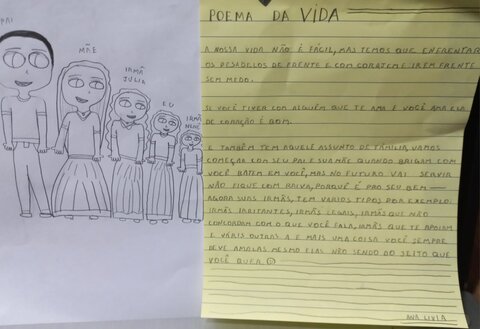 PAI
MÃE
IRMÃ
JULIA
EU
IRMÃ
NENÊ
POEMA DA VIDA
A NOSSA VIDA NÃO É FÁCIL, MAS TEMOS QUE ENFRENTAR
OS DESAFIOS DE FRENTE E COM CORAGEM E IREM FRENTE
SEM MEDO.
SE VOCÊ TIVER COM ALGUÉM QUE TE AMA E VOCÊ AMA ELA
DE CORAÇÃO É BOM.
E TAMBÉM TEM AQUELE ASSUNTO DE FAMÍLIA, VAMOS
COMEÇAR COM SEU PAI E SUA MÃE QUANDO BRIGAM COM
VOCÊ BATEM EM VOCÊ, MAS NO FUTURO VAI SERVIR
NÃO FIQUE COM RAIVA, PORQUÊ É PRO SEU BEM
AGORA SUAS IRMÃS, TEM VÁRIOS TIPOS POR EXEMPLO:
IRMÃS IRRITANTES, IRMÃS LEGAIS, IRMÃS QUE NÃO
CONCORDAM COM O QUE VOCÊ FALA, IRMÃS QUE TE APOIAM
E VÁRIS OUTRAS A E MAIS UMA COISA VOCÊ SEMPRE
DEVE AMALAS MESMO ELAS NÃO SENDO DO JEITO QUE
VOCÊ QUER
ANA LIVIA